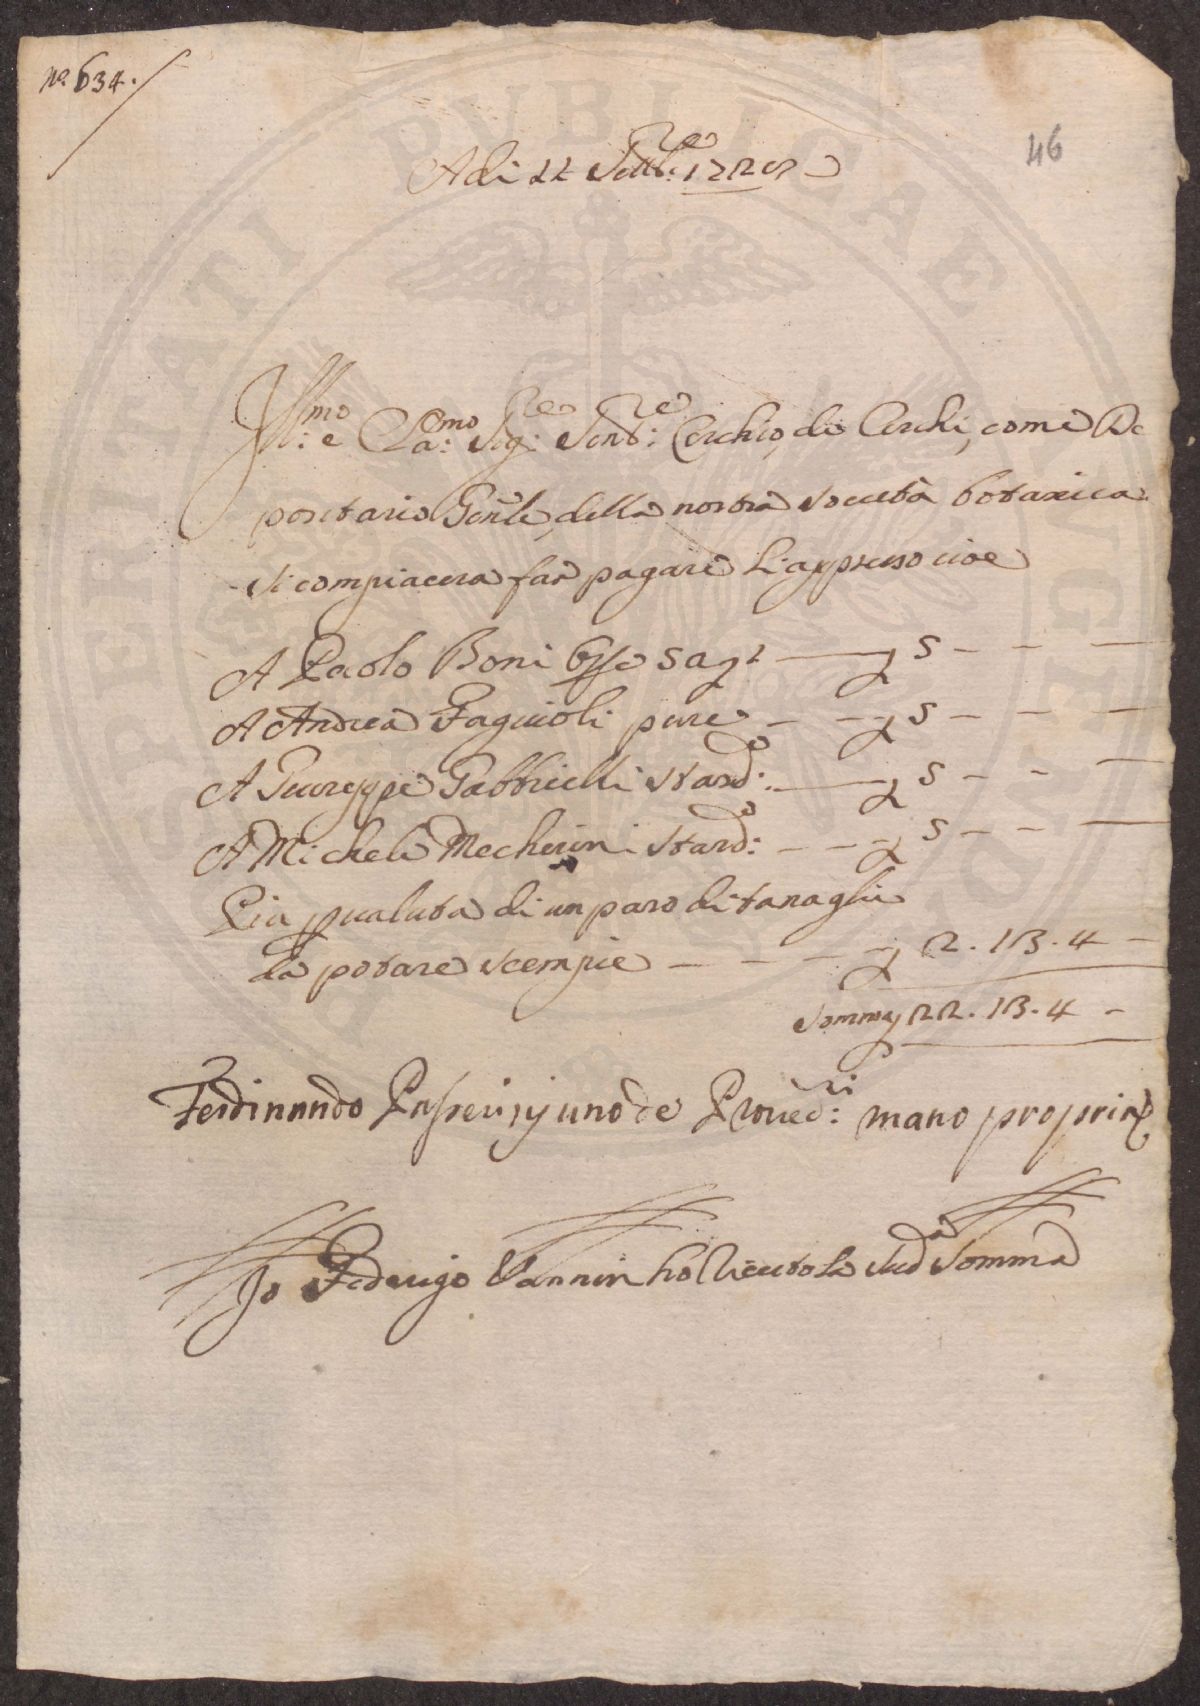 N.o 634.
46
A di 22 Settb.re 172
Ill:mo e Cla:mo Sig:re Send:re Cerchio, di Cerchi, come De
positario Genle, della nostra Società botanica
si compiacera far pagare L'appresso cioe
A Paolo Boni 5 — 5 - - —
A Andrea Fagiuoli pure - - - 5 - - —
A Giuseppe Gabbrielli stard:o — 5 - - —
A Micheli Mecherini stard:o - - - 5 - - —
E piu valuta di un paro di tanaglie
da potare scempie - - - - 2. 13. 4 -
Somma 22. 13. 4 -
Ferdinando uno de Proved:ri mano propria
Io Federigo Vannini ho riceuto la sud.a Somma